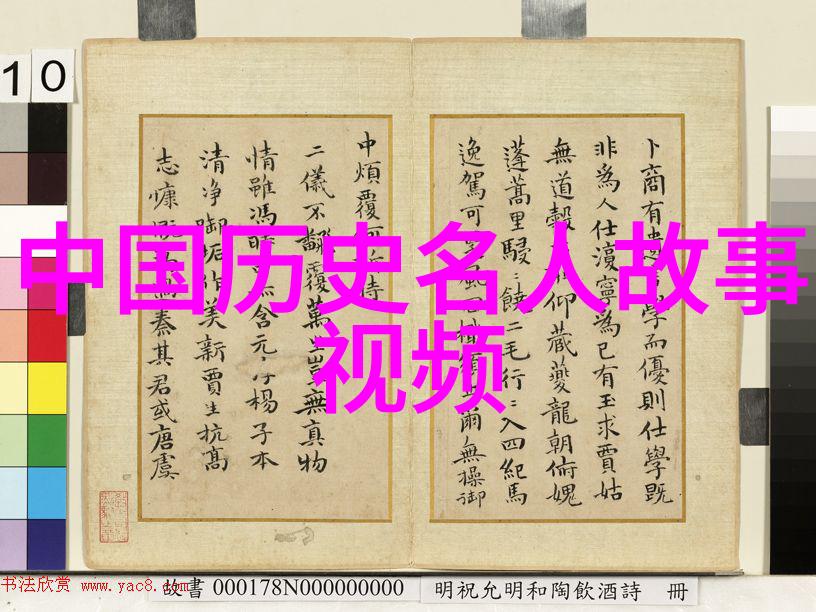 10
卜商有學而優則仕學既
非為人仕寧為己有玉求賈姑
無道穀仰藏夔龍朝俯媿
蓬蒿里駸〻饒二毛行〻入四紀馬
逸駕可風爾無操御
中煩覆
二儀不翻覆萬無真物
情雖馮含元楊子本
清净垢作美新賈生抗髙
志慷秦其君或唐虞
中国历史名人故事
视频
书法欣赏 www.yac8.com
故書 000178N000000000
明祝允明和陶飲酒詩 冊